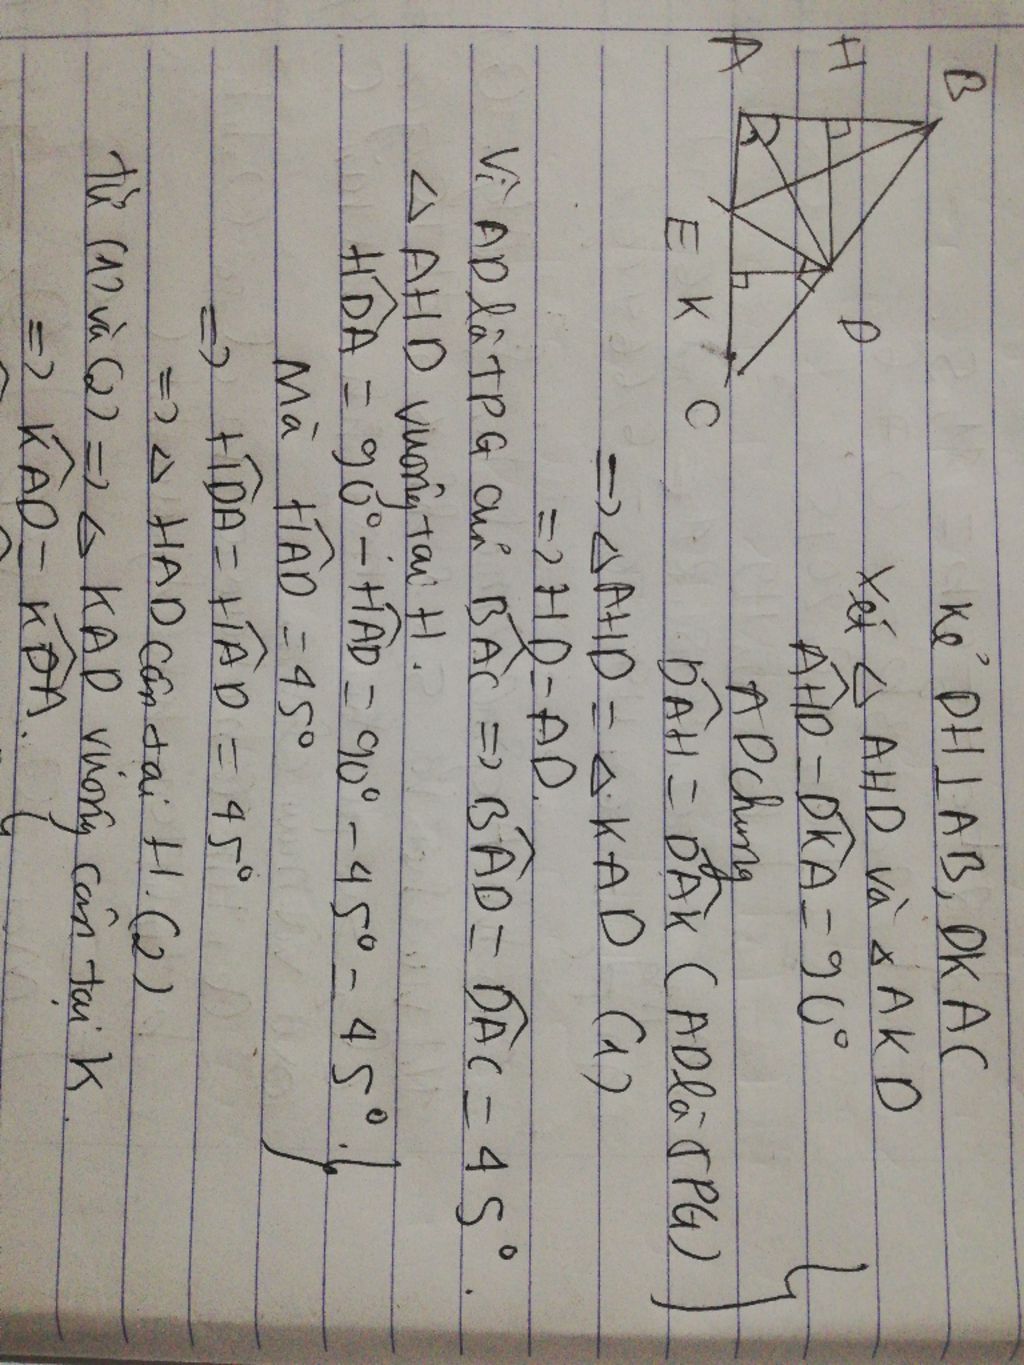 B
H
A
D
E
K
C
Kẻ DH⊥AB, DK AC
Xét △ AHD và △ AKD
AHD = DKA = 90°
AD chung
DAH = DAK (AD là TPG)
=> △ AHD = △ KAD (1)
=> HD = AD.
Vì AD là TPG của BAC => BAD = DAC = 45°.
△ AHD vuông tại H.
HDA = 90° - HAD = 90° - 45° = 45°.
Mà HAD = 45°
=> HDA = HAD = 45°
=> △ HAD cân tại H. (2)
Từ (1) và (2) => △ KAD vuông cân tại K.
=> KAD = KDA.